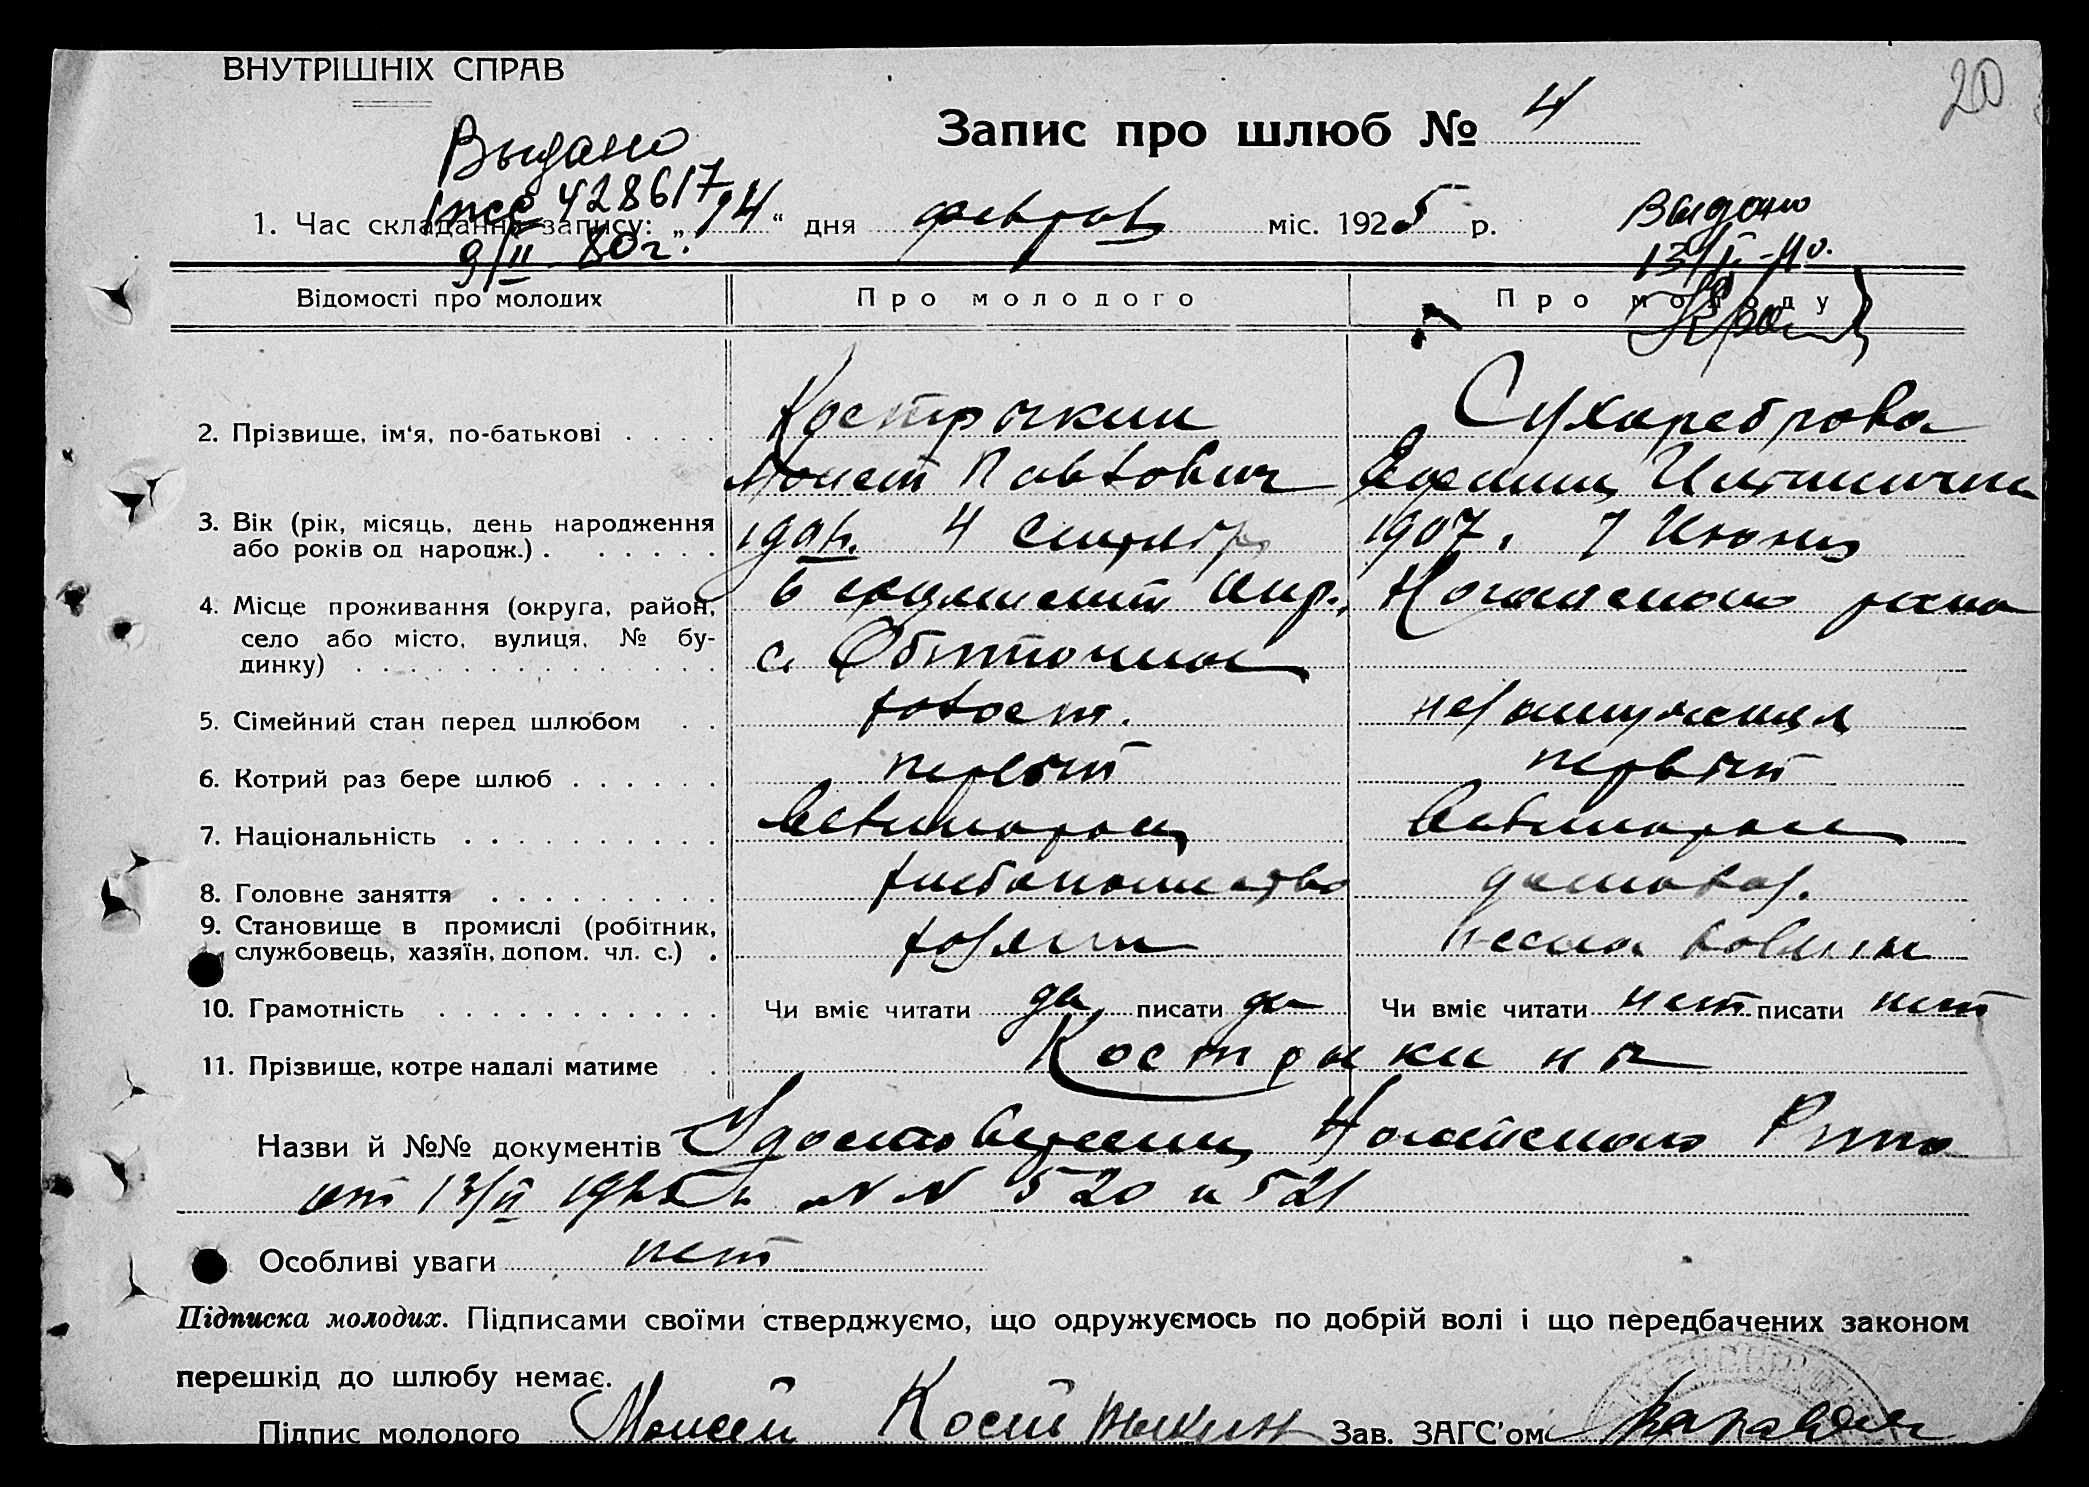 ВНУТРІШНІХ СПРАВ
20
Запис про шлюб № 4
Выдано
428617
1. Час складання запису: „ 14 “ дня февраля міс. 1925 р.
9/II 80 г.
Выдано
13/II-40.
Відомості про молодих
Про молодого
Про молоду
2. Прізвище, ім‘я, по-батькові . . . .
Кострыкин
Сухареброва
Моисей Павлович
3. Вік (рік, місяць, день народження
або років од народж.) . . . . . .
4 Сентября
1907 г. 7 Июня
4. Місце проживання (округа, район,
село або місто, вулиця, № бу-
динку) . . . . . . . . . . . . . .
окр.,
Ногайского района
с. Обиточное
5. Сімейний стан перед шлюбом . .
холост.
незамужняя
6. Котрий раз бере шлюб . . . . . .
первый
первый
7. Національність . . . . . . . . . .
Великоросс
Великоросс
8. Головне заняття . . . . . . . . .
хлебопашество
домохоз.
9. Становище в промислі (робітник,
службовець, хазяїн, допом. чл. с.) .
хозяин
10. Грамотність . . . . . . . . . . .
Чи вміє читати да писати да
Чи вміє читати нет писати нет
11. Прізвище, котре надалі матиме .
Кострыкины
Назви й №№ документів Удостоверения Ногайского Рика
от 13/II 1925 г. NN 520 и 521
Особливі уваги нет
Підписка молодих. Підписами своїми стверджуємо, що одружуємось по добрій волі і що передбачених законом
перешкід до шлюбу немає.
Підпис молодого Моисей Кострыкин Зав. ЗАГС'ом